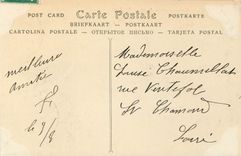 POST CARD Carte Postale POSTKARTE
BRIEFKAART — POSTKAART
CARTOLINA POSTALE — ОТКРЫТОЕ ПИСЬМО — TARJETA POSTAL
meilleure
amitié
le 9/8
Mademoiselle
Louise
rue Ventefol
St Chamond
Loire